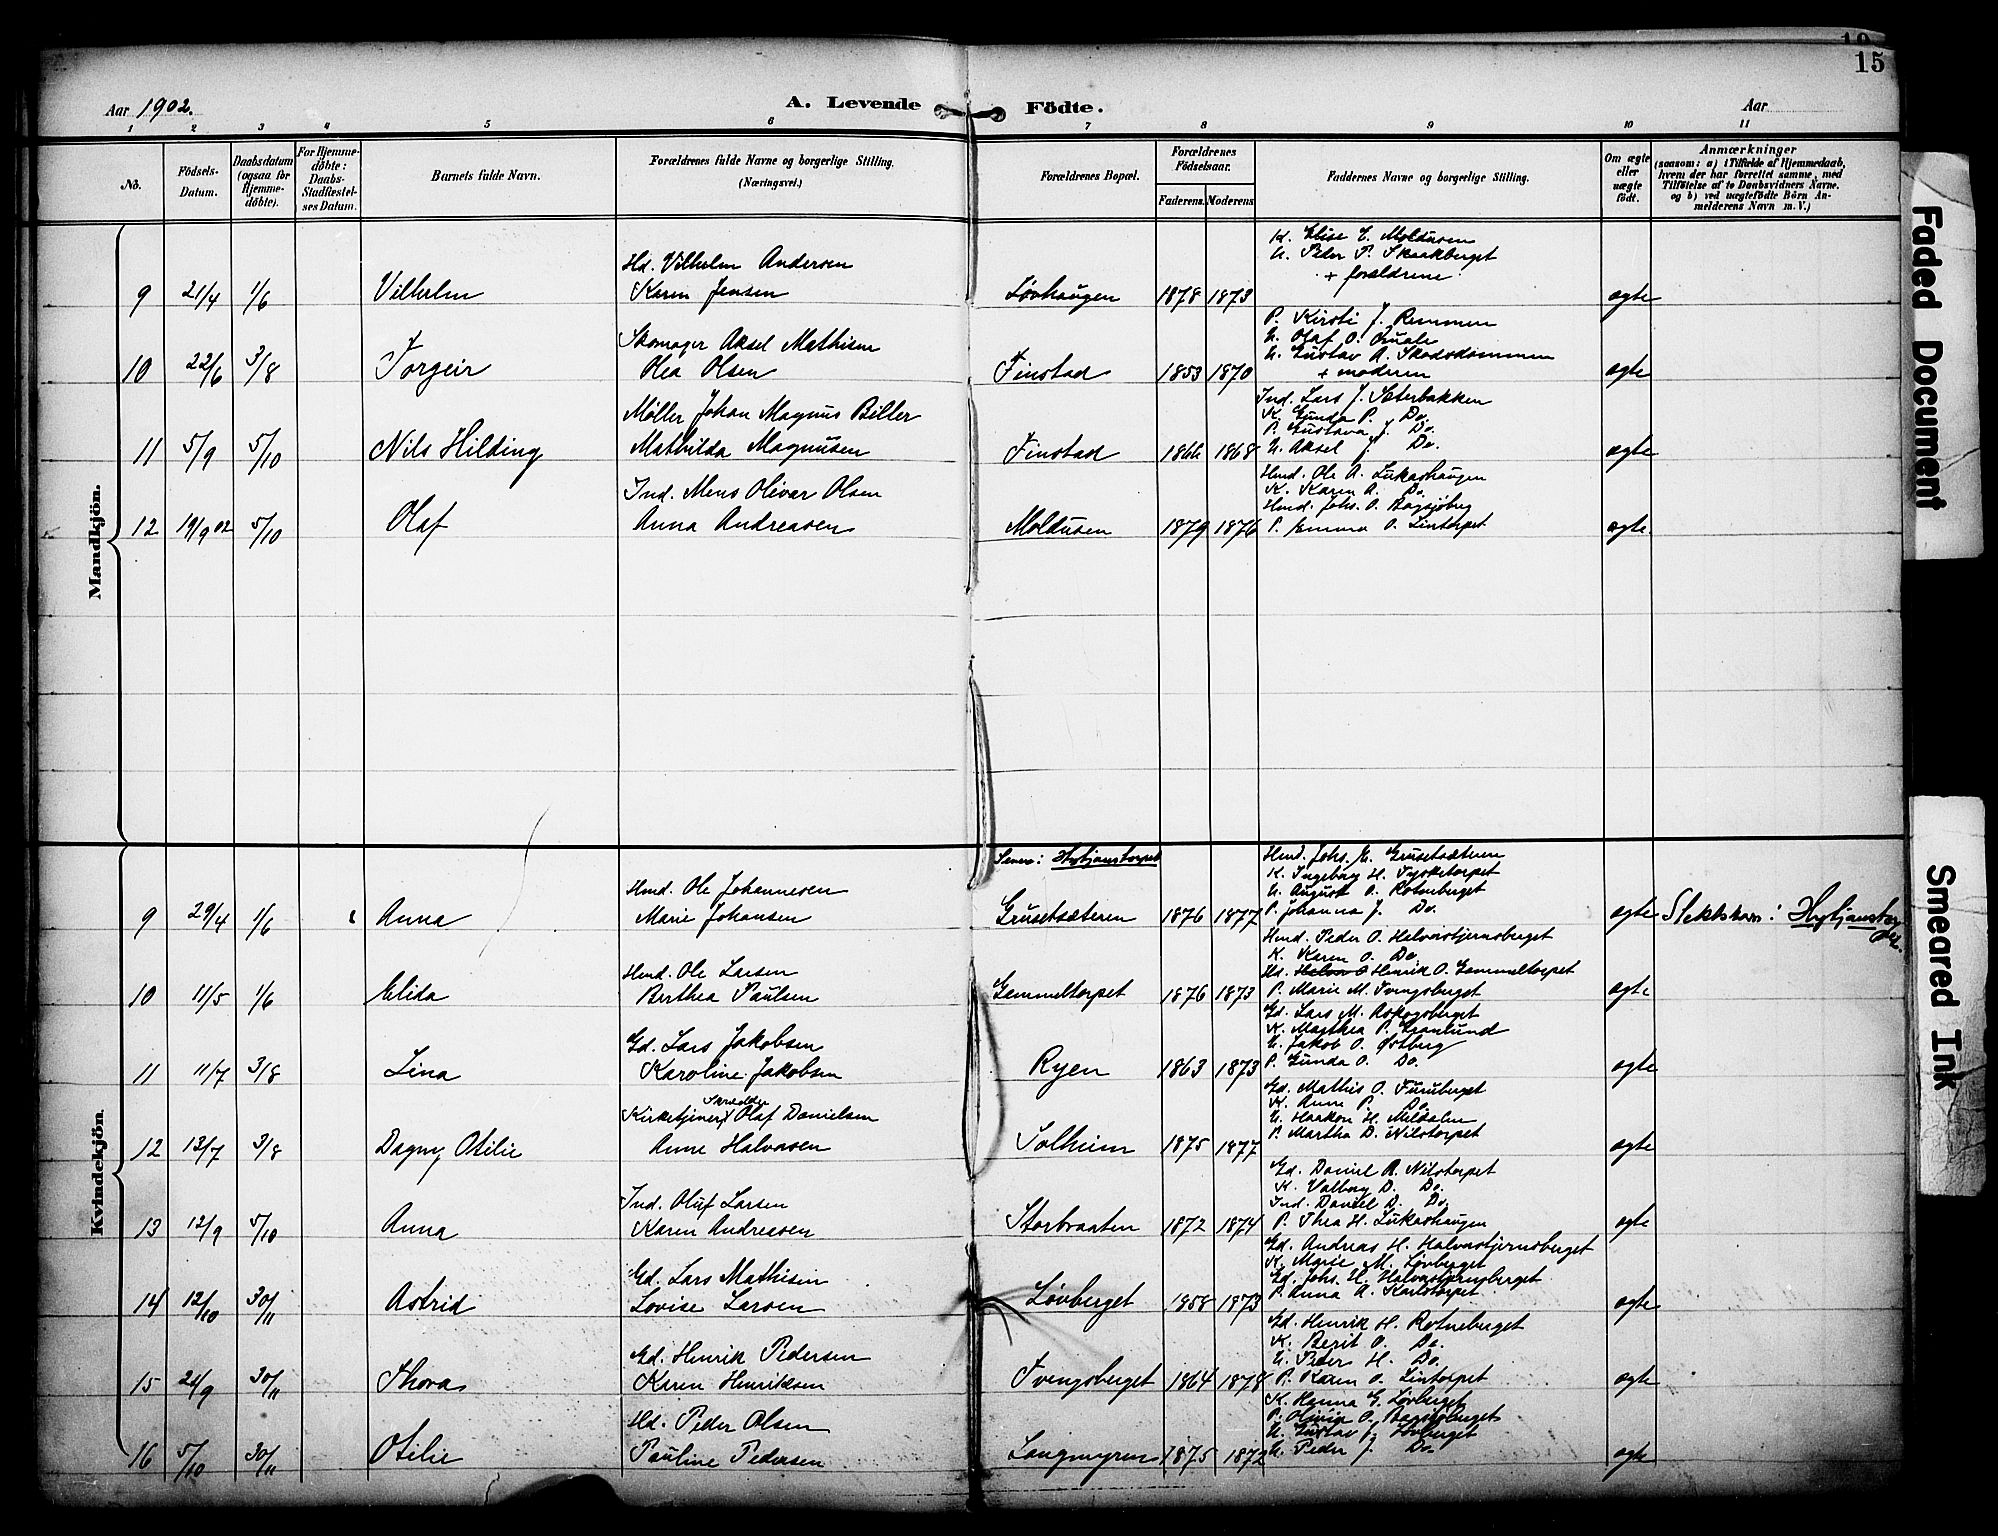 15
Aar 1902.
A. Levende Födte.
Aar
1 2 3 4 5 6 7 8 9 10 11
No.
Födsels-Datum.
Daabsdatum (ogsaa for Hjemme-döbte).
For Hjemme-döbte: Daabs-Stadfæstel-ses Datum.
Barnets fulde Navn.
Forældrenes fulde Navne og borgerlige Stilling.
(Næringsvei.)
Forældrenes Bopæl.
Forældrenes Födselsaar.
Faderens. Moderens
Faddernes Navne og borgerlige Stilling.
Om ægte eller uægte födt.
Anmærkninger
(saasom: a) i Tilfælde af Hjemmedaab,
hvem der har forrettet samme, med
Tilföielse af to Daabsvidners Navne.
og b) ved uægtefödte Börn An-
melderens Navn m. V.)
Mandkjön.
K. Elise E. Moldusen
U. Peder P. Skaskberget
+ forældrene
Hd. Vilhelm Andersen
9 21/4 1/6 Vilhelm Karen Jensen Løvhaugen 1878 1873 ægte
P. Kirsti J. Remmen
U. Olaf O.
U. Gustav A. Skodsdammen
+ moderen
Skomager Aksel Mathisen
10 22/6 3/8 Torgeir Olea Olsen Finstad 1853 1870 ægte
Ind. Lars J. Sæterbakken
K. Gunda P. Do.
P. Gustava J. Do.
U. Aksel J. Do.
Møller Johan Magnus Biller
11 5/9 5/10 Nils Hilding Mathilda Magnusen Finstad 1866 1868 ægte
Hmd. Ole A. Lukashaugen
K. Karen A. Do.
Hmd. Johs. O. Bagsjøberg
P. Emma O. Lintorpet
Ind. Mens Olivar Olsen
12 19/9 02 5/10 Olaf Anna Andreasen Moldusen 1879 1876 ægte.
Kvindekjön.
Senere: Hytjanstorpet
Hmd. Johs. E. Grusetsæteren
K. Ingeborg H. Tysketorpet
U. August O. Rotneberget
P. Johanna J. Do.
Hmd. Ole Johannesen
9 29/4 1/6 Anna Marie Johansen Grusetsæteren 1876 1877 ægte Slektsnavn: Hytjanstorpet.
Hmd. Peder O. Halvarstjernsberget
K. Karen O. Do.
Hd. Henrik O. Gammeltorpet
P. Marie M. Tvengsberget
Hmd. Ole Larsen
10 11/5 1/6 Elida Berthea Paulsen Gammeltorpet 1876 1873 ægte
Gd. Lars M. Rokogsberget
K. Marthea P. Granlund
U. Jakob O. Østberg
P. Gunda O. Do.
Gd. Lars Jakobsen
11 11/7 3/8 Lina Karoline Jakobsen Ryen 1863 1873 ægte
Gd. Mathis O. Furuberget
K. Anne P. Do.
U. Haakon H. Meldalen
P. Martha D. Nilstorpet
Skrædder
Kirketjener Olaf Danielsen
12 13/7 3/8 Dagny Otilie Anne Halvasen Solheim 1875 1877 ægte
Gd. Daniel A. Nilstorpet
K. Valborg D. Do.
Ind. Daniel D. Do.
P. Thea H. Lukashaugen
Ind. Oluf Larsen
13 12/9 5/10 Anna Karen Andreasen Storbraaten 1872 1874 ægte
Gd. Andreas H. Halvarstjernsberget
K. Marie M. Løvberget
Gd. Johs. H. Halvarstjernsberget
P. Anna A. Karlstorpet
Gd. Lars Mathisen
14 12/10 30/11 Astrid Lovise Larsen Løvberget 1858 1873 ægte
Gd. Henrik H. Rotneberget
K. Berit O. Do.
U. Peder H. Do.
P. Karen O. Lintorpet
Gd. Henrik Pedersen
15 24/9 30/11 Thora Karen Henriksen Tvengsberget 1864 1878 ægte
K. Hanna G. Løvberget
P. Olivia O. Bagsjøberget
U. Gustav J. Løvberget
U. Peder J. Do.
Hd. Peder Olsen
16 5/10 30/11 Otilie Pauline Pedersen Langmyren 1875 1872 ægte
Faded Document
Smeared Ink